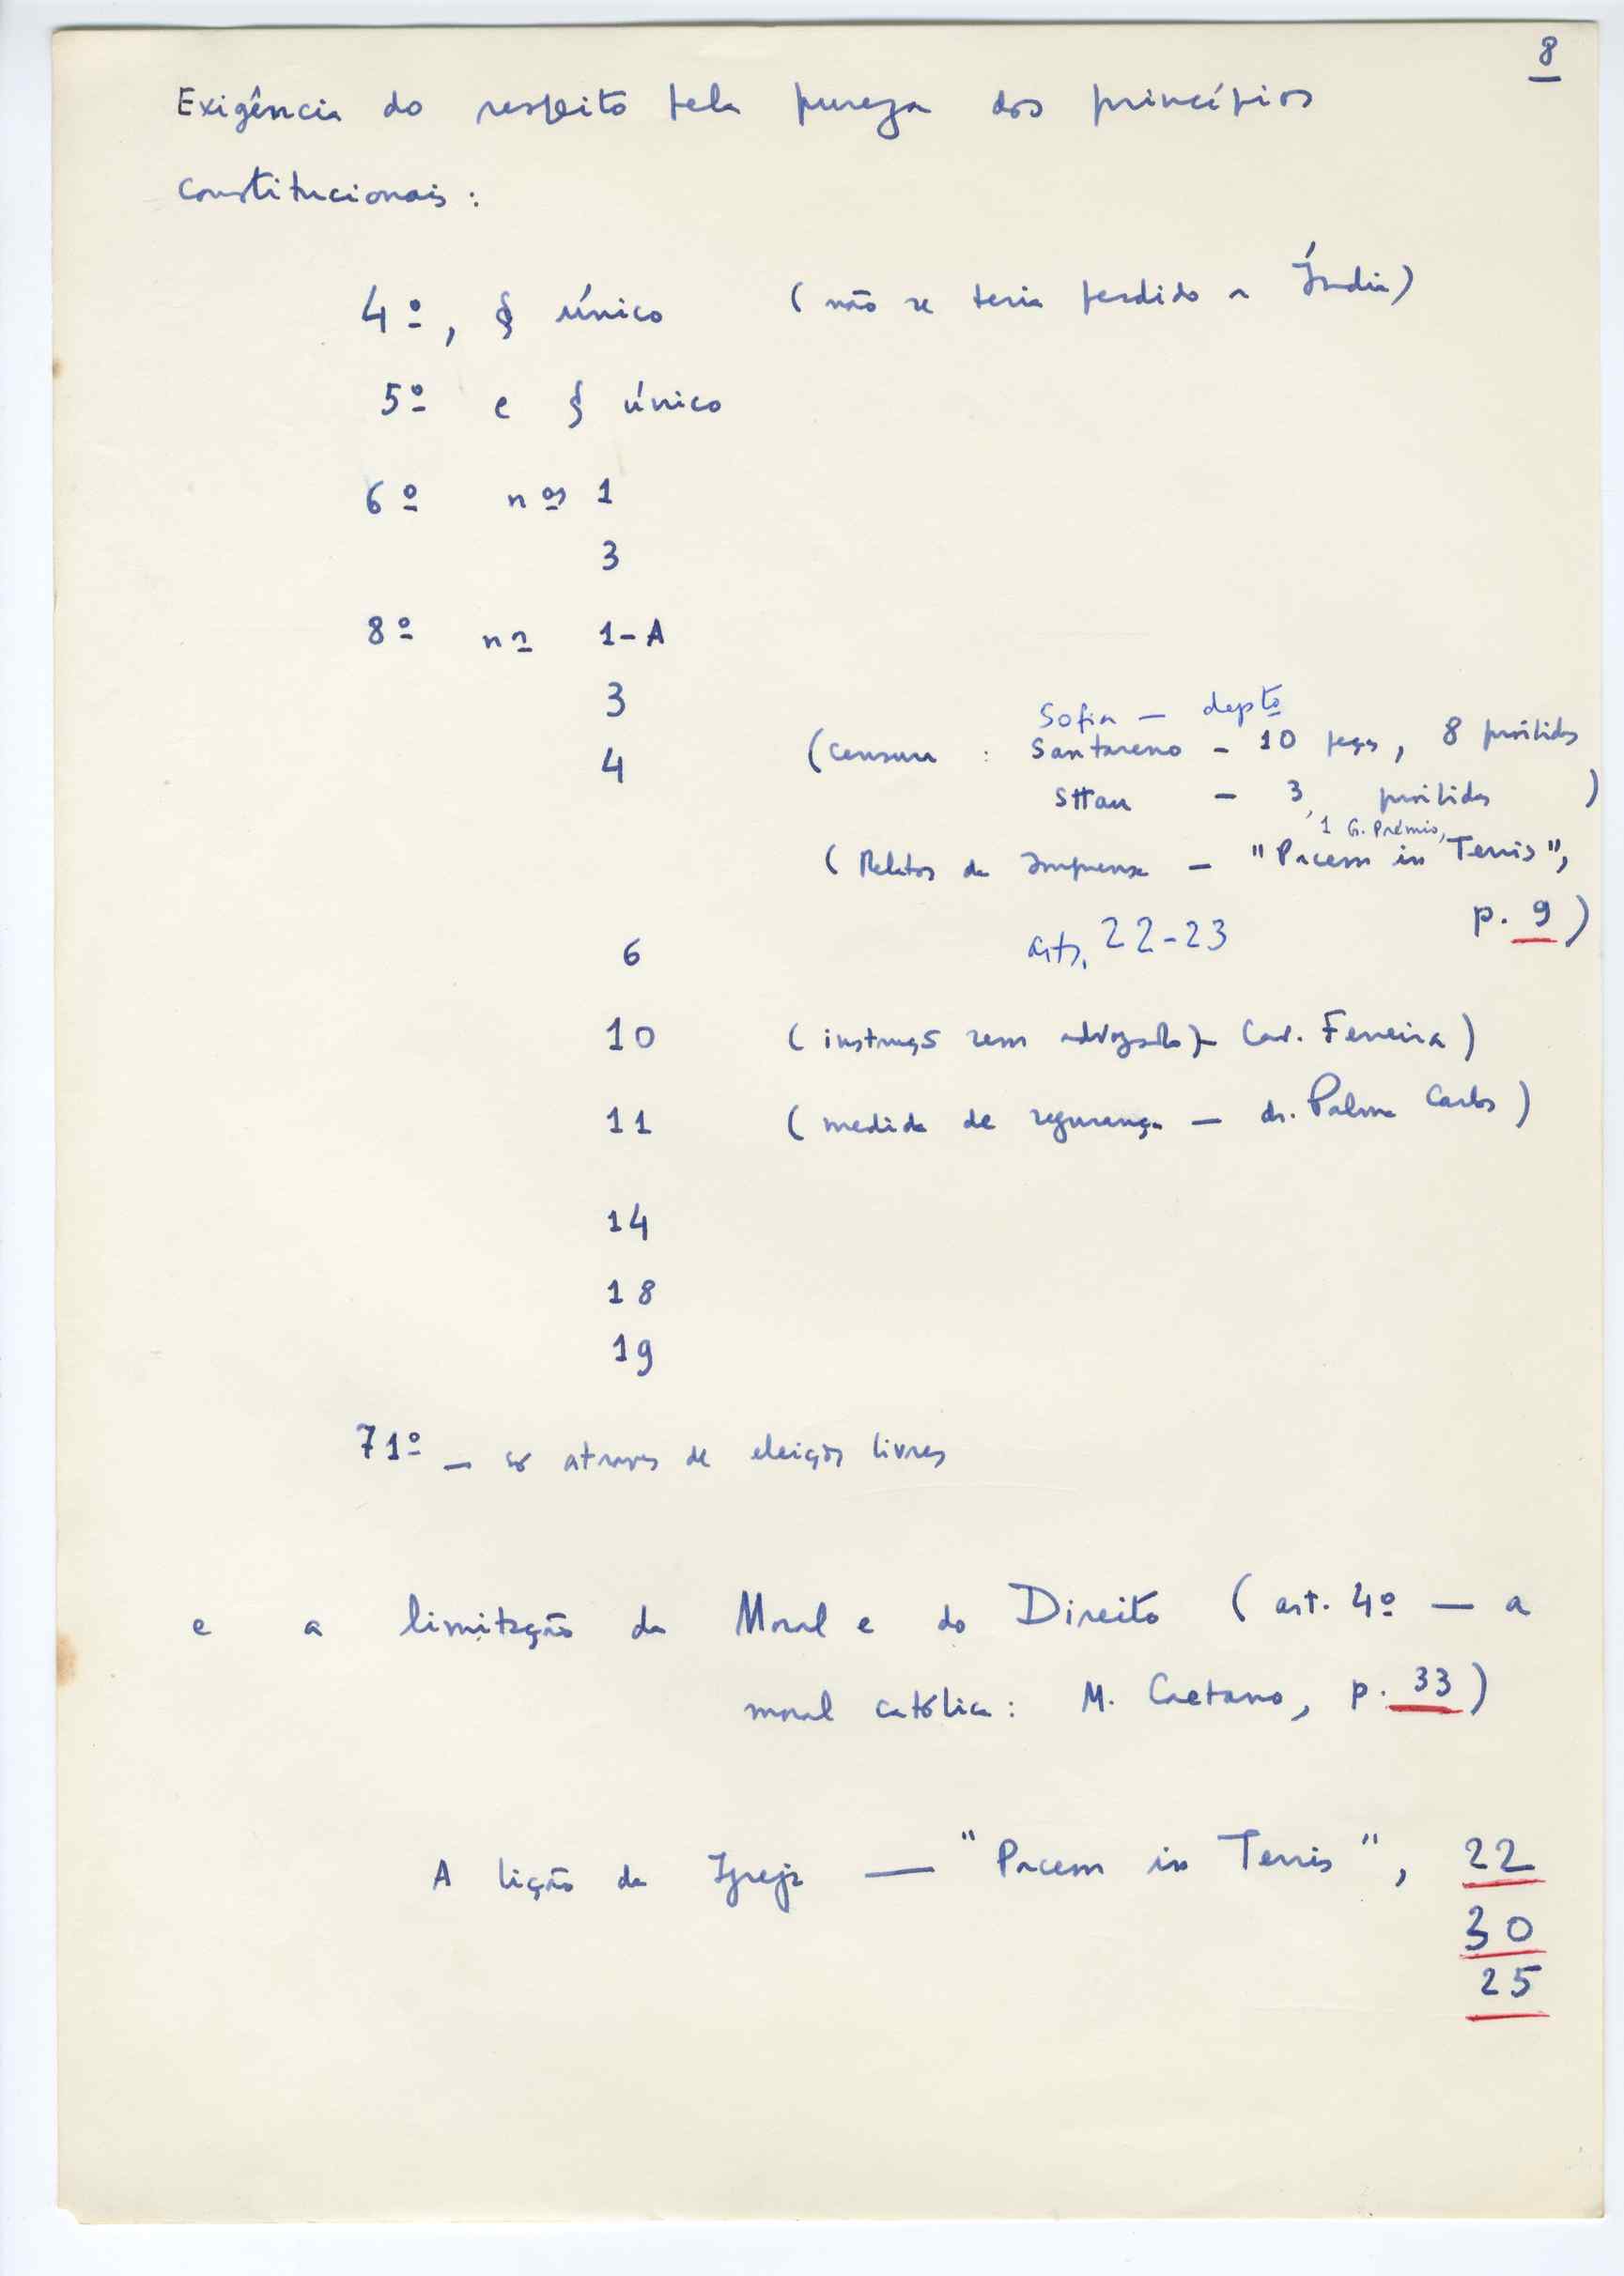 8
Exigência do respeito pela pureza dos princípios
constitucionais:
4º, § único (não se teria perdido a Índia)
5º e § único
6º nºs 1
3
8º nº 1-A
3
Sofia — deptº
4 (censura: Santareno - 10 peças, 8 proibidas
Sttau - 3, proibidas)
1 G. Prémio,
(Relatos da Imprensa - "Pacem in Terris",
p. 9)
6 arts. 22-23
10 (instrução sem advogado) - Car. Ferreira)
11 (medida de segurança — dr. Palma Carlos)
14
18
19
71º — só atraves de eleições livres
e a limitação da Moral e do Direito (art. 4º — a
moral católica: M. Caetano, p. 33)
A lição da Igreja — "Pacem in Terris", 22
30
25